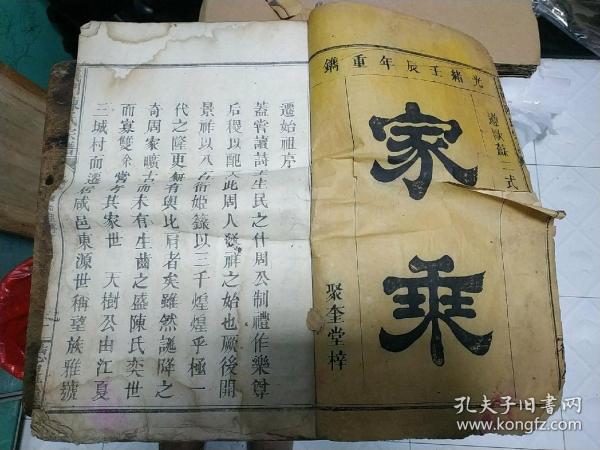 光緒壬辰年重鐫
遵歐蘇二式
家乘
聚奎堂梓
遷始祖序
蓋嘗讀詩生民之什周公制禮作樂尊
后稷以配天此周人發祥之始也厥後開
景祚以八百衍姬籙以三千煌煌乎極一
代之隆更無有與比肩者矣雖然誕降之
奇周家曠古而未有生齒之盛陳氏奕世
而寡雙余嘗考其家世 天樹公由江夏
三城村而遷居咸邑東源世稱望族雅號
孔夫子旧书网
www.kongfz.com